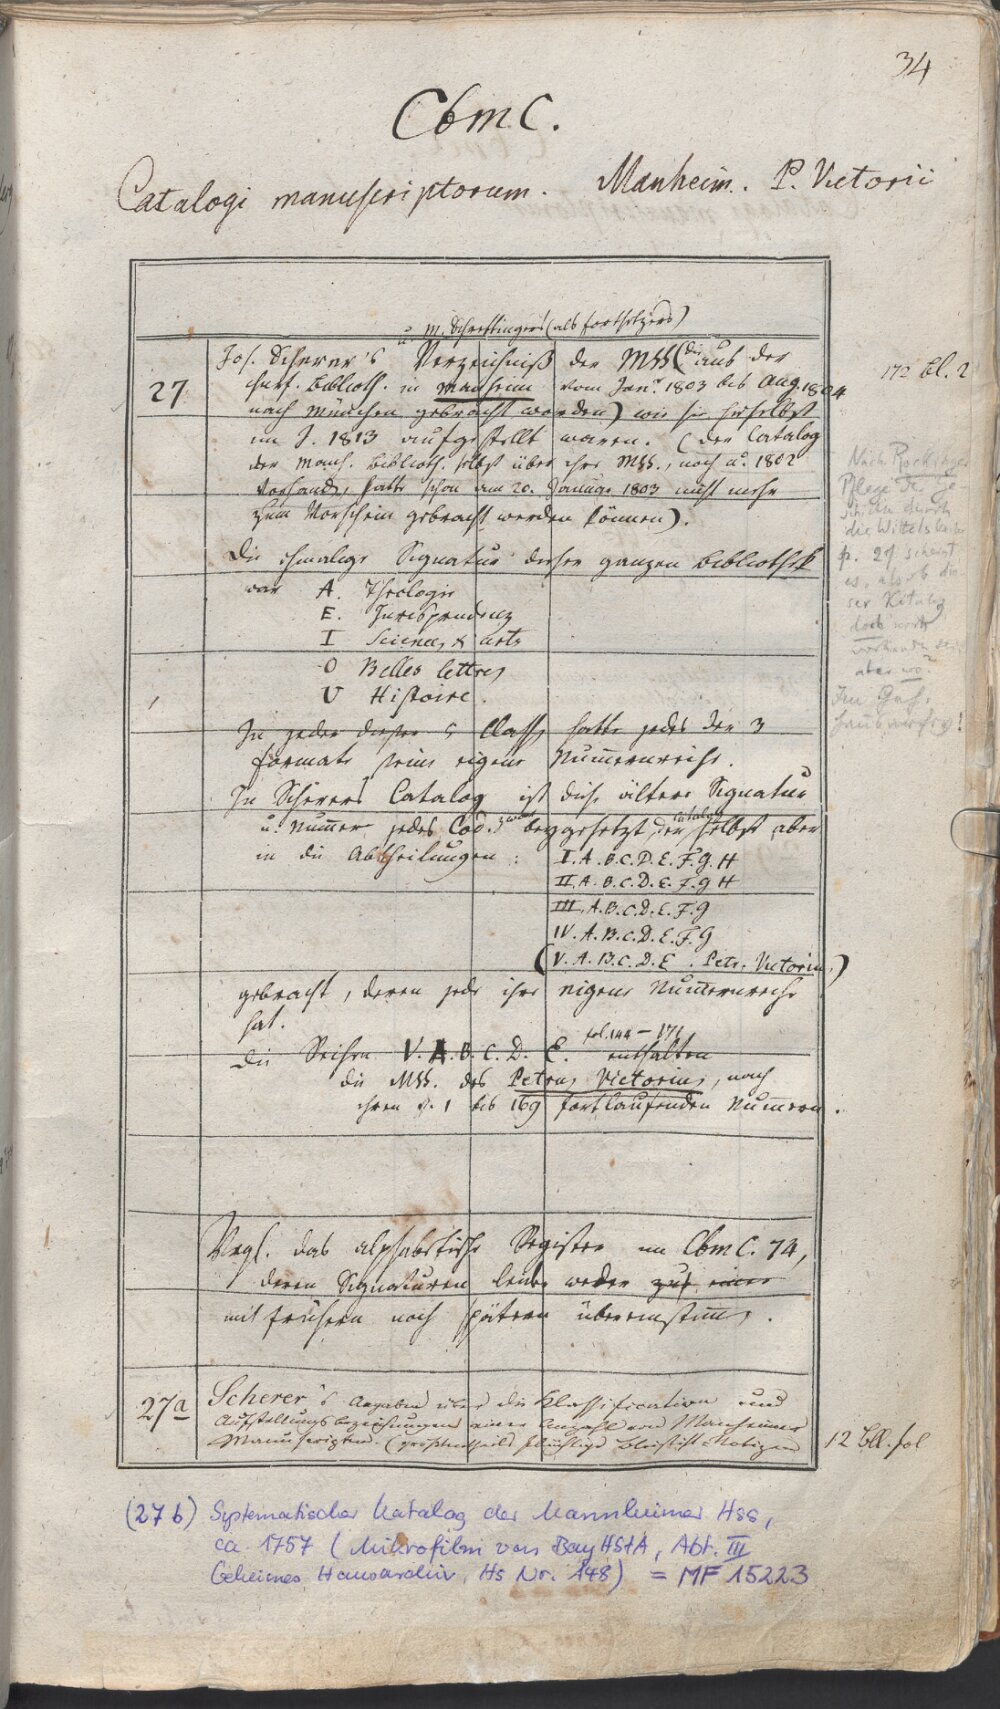 34
Cbm C.
Catalogi manuscriptorum. Manheim. P. Victorii
u. M. Schrettingers (als Fortsetzers)
27 Jos. Scherer's Verzeichniß der MSS (die aus der
churf. Biblioth. in Manheim vom Jan. 1803 bis Aug. 1804
nach München gebracht worden) wie sie hieselbst
im J. 1813 aufgestellt waren. (Der Catalog
der Manh. Biblioth. selbst über ihre MSS., noch a. 1802
vorhanden, hatte schon am 20. Januar 1803 nicht mehr
zum Vorschein gebracht werden können).
172 Bl. 2
Die ehmalige Signatur dieser ganzen Bibliothek
war A. Theologie
E. Jurisprudenz
I Sciences & arts
O Belles lettres
U Histoire.
In jeder dieser 5 Classen hatte jedes der 3
Formate seine eigene Nummernreihe.
In Scherers Catalog ist diese ältere Signatur
u. Nummer jedes Cod. zwar beygesetzt, der Catalog selbst aber
in die Abtheilungen: I. A. B. C. D. E. F. G. H
II A. B. C. D. E. F. G H
III. A. B. C. D. E. F. G
IV. A. B. C. D. E. F. G
(V. A. B. C. D. E. Petr. Victorius)
gebracht, deren jede ihre eigene Nummernreihe
hat.
Die Reihen V. A. B. C. D. E. fol. 144–171 enthalten
die MSS. des Petrus Victorius, nach
ihren v. 1 bis 169 fortlaufenden Nummern.
Nach Rockinger
Pflege d. Ge
schichte durch
die Wittelsbacher
p. 21 scheint
es, als ob die
ser Katalog
doch noch
vorhanden sei
aber wo?
Im Geh.
Hausarchiv!
Vergl. das alphabetische Register im Cbm C. 74,
deren Signaturen leider weder zus einer
mit frühern noch spätern übereinstimmen.
27a Scherer's Angaben über die Klassification und
Aufstellungsbezeichnungen einer Anzahl von Manheimer
Manuscripten. (größtentheils flüchtige Bleistift-Notizen
12 Bll. fol
(27 b) Systematischer Katalog der Mannheimer Hss,
ca. 1757 (Mikrofilm von BayHStA, Abt. III
Geheimes Hausarchiv, Hs Nr. 148) = MF 15223